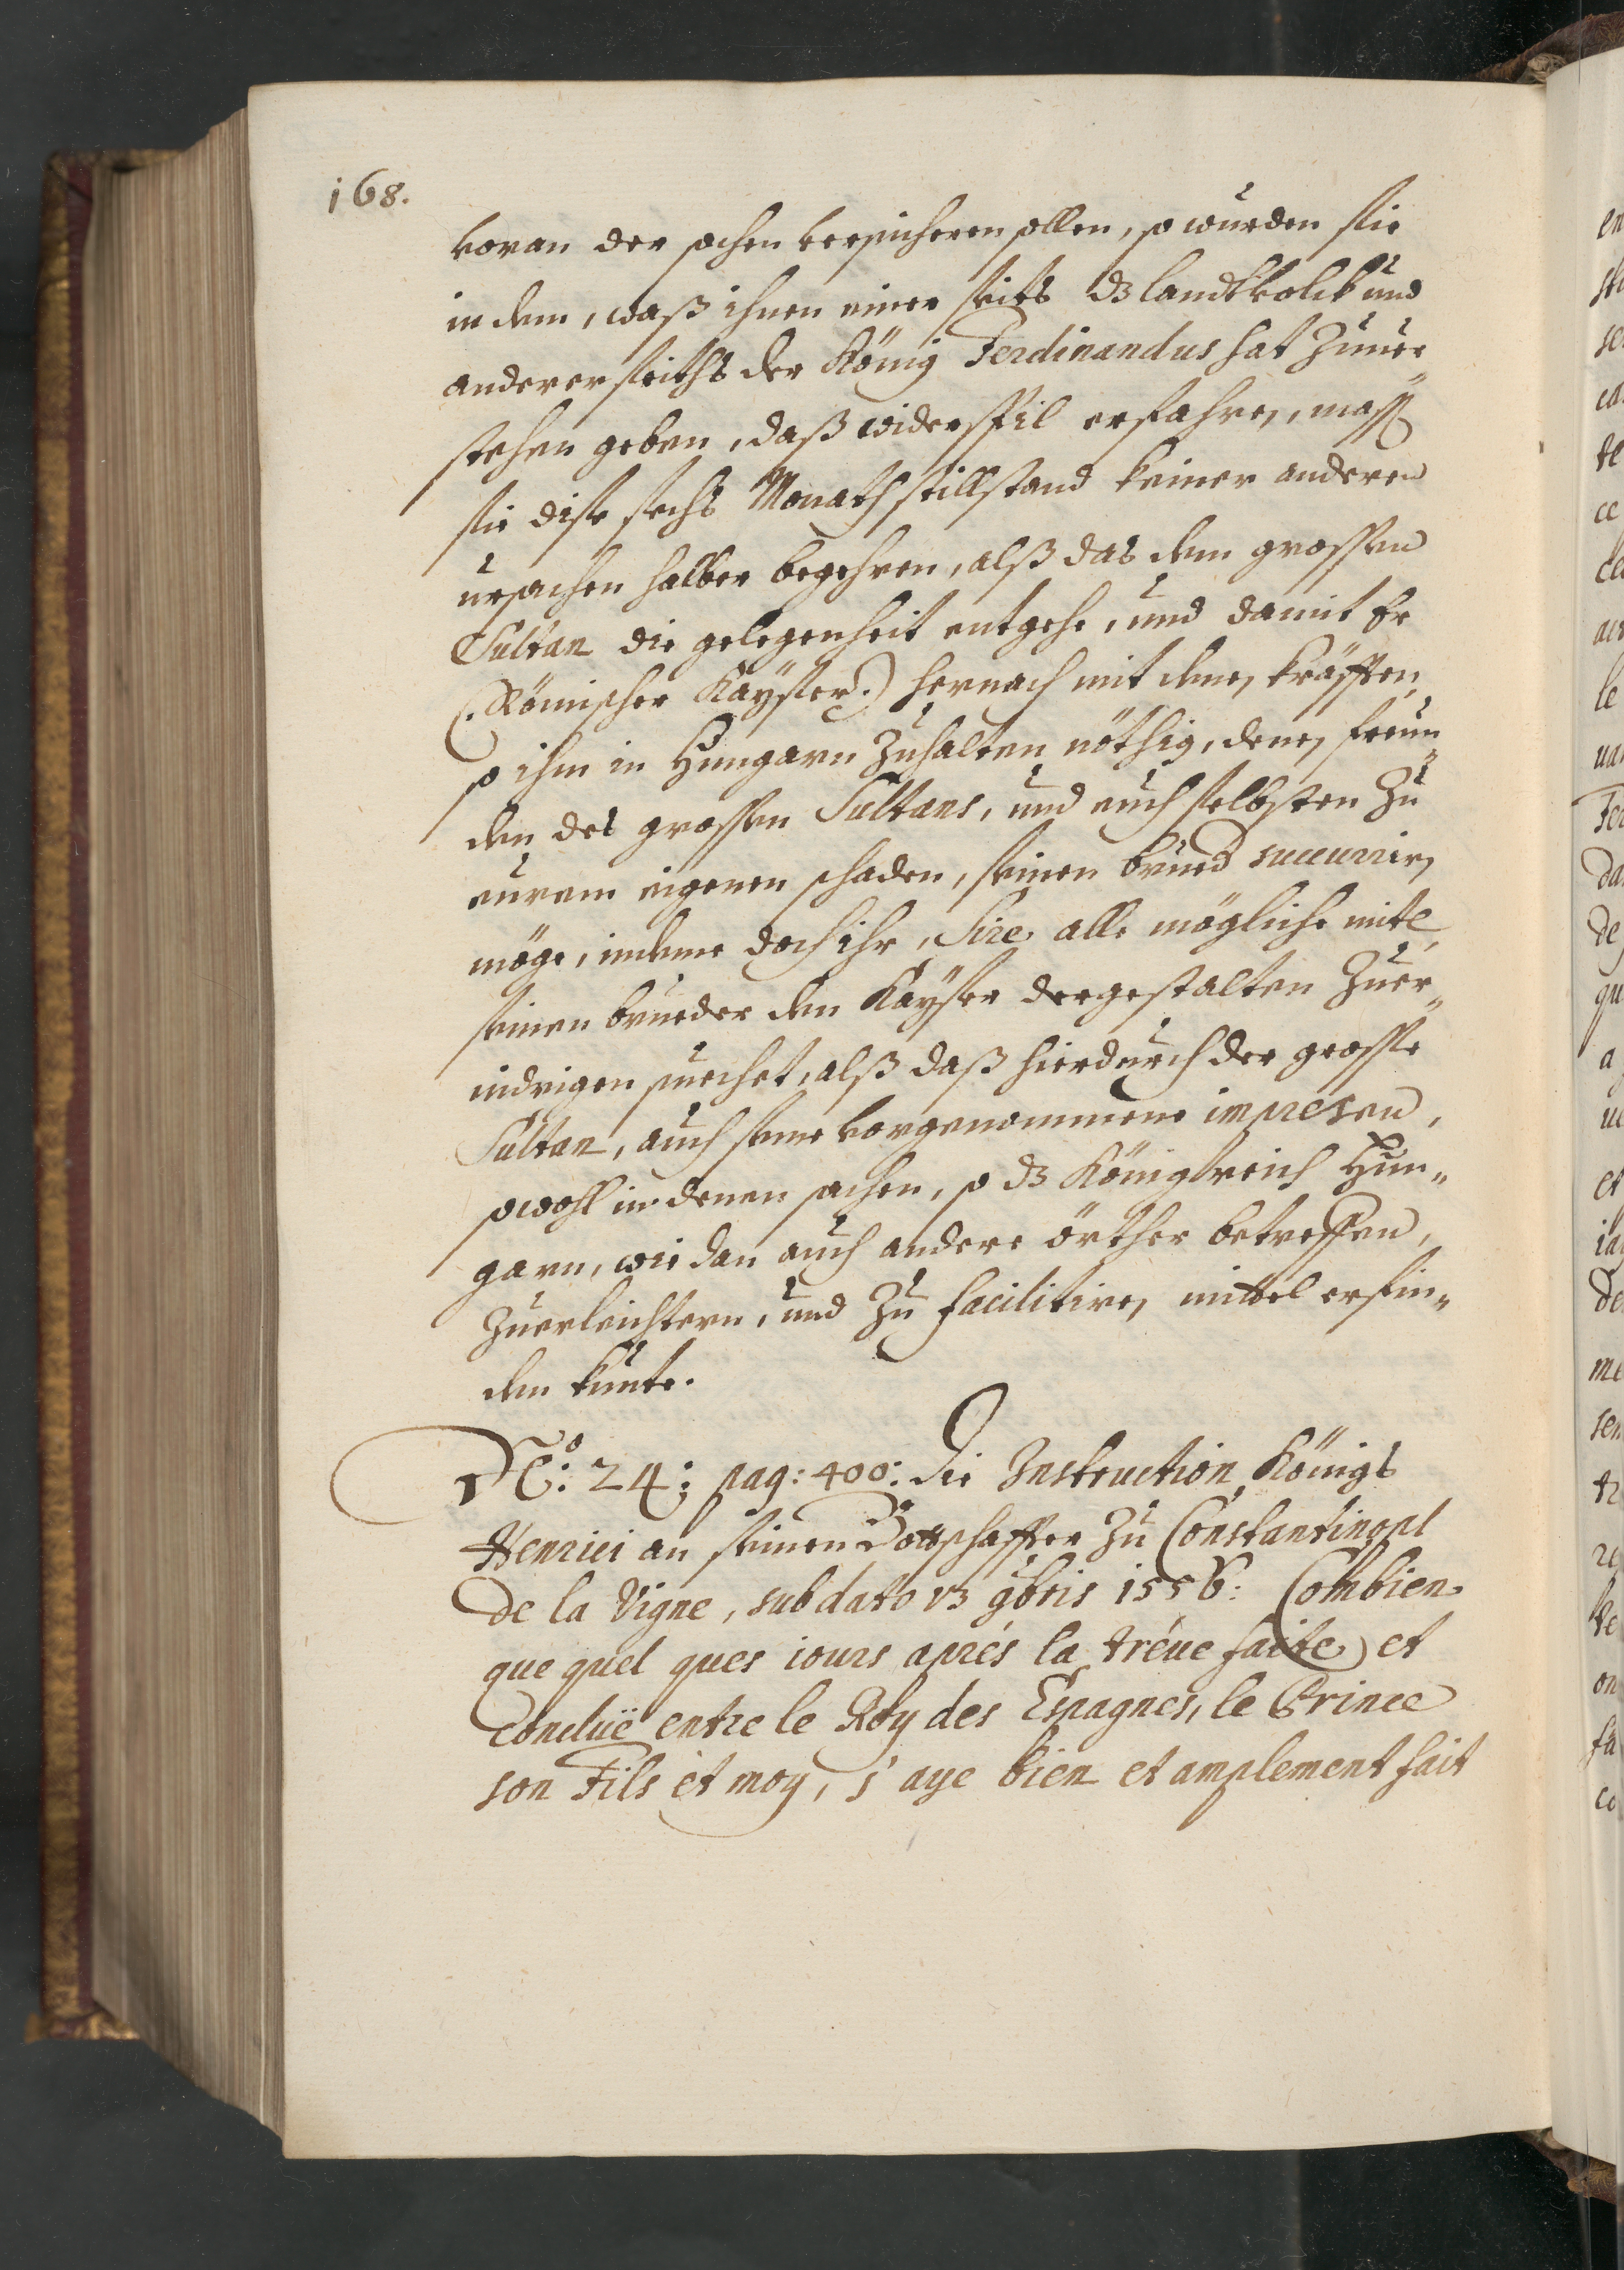 168.
voran der sachen versicheren sollen, so wurden sie
in dem, waß ihnen einer seits dz landtvolck und
anderer seiths der König Ferdinandus hat zuuer
stehen geben, daß widerspil erfahren, mass
sie dise sechs Monath stillstand keiner anderen
ursachen halber begehren, alß das dem grossen
Sultan die gelegenheit entgehe, und damit Er
(. Römischer Kaÿser.) hernach mit denen kräfften
so ihm in Hungarn zuhalten nöthig, denen freun„
den des grossen Sultans, und auch selbsten zu
eurem eigenen schaden, seinen brued succurrirn
möge, indeme doch ihr, Sire alle mögliche mitl
seinen brueder den Kaÿser dergestalten zuer„
nidrigen suechet, alß daß hierdurch der grosse
Sultan, auch seine vorgenommene impresen,
sowohl in denen sachen, so dz Königreich Hun„
garn, wie dan auch andere örther betreffen,
zuerleichtern, und zu facilitiren mittel erfin„
den kunte.
No: 24: pag: 400: die Instruction Königs
Henrici an seinen Bottschaffter zu Constantinopl
De la Vigne, sub dato 13 9bris 1556: Combien
que quel ques iours aprés la tréue faite et
concluë entre le Roy des Espagnes, le Prince
son Fils et moy, j' aye bien et amplement fait